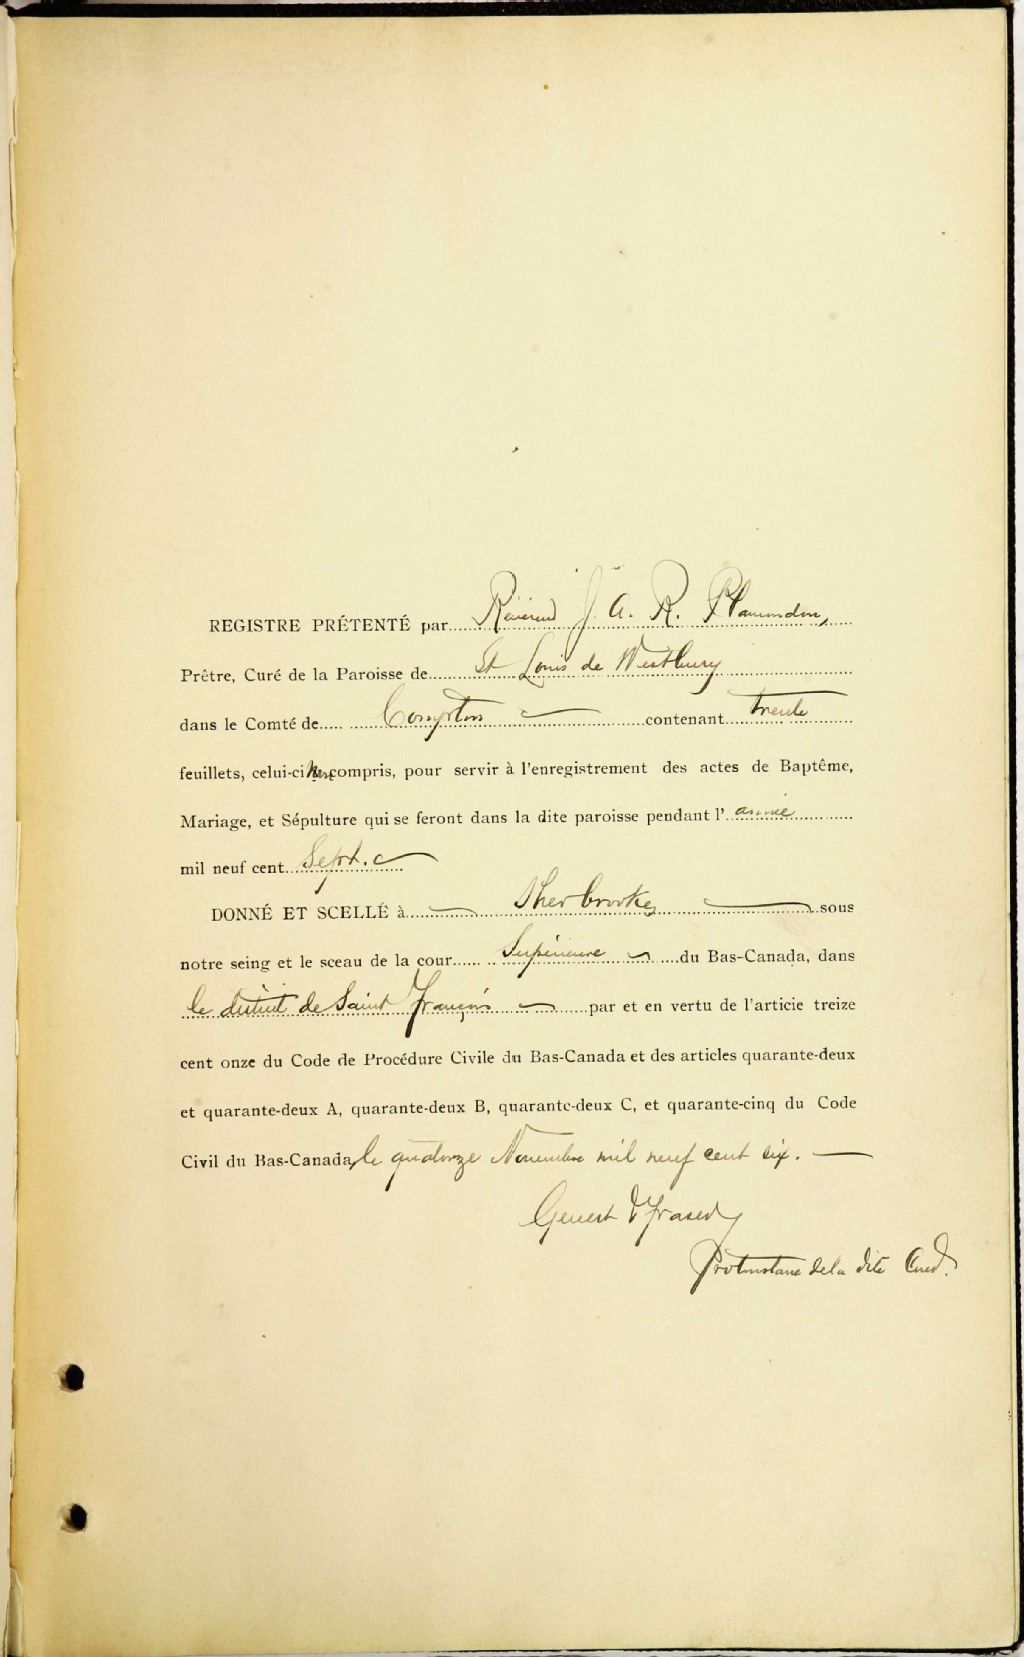 REGISTRE PRÉTENTÉ par Révérend J. A. R. Plamondon,
Prêtre, Curé de la Paroisse de St Louis de Westbury
dans le Comté de Compton contenant trente
feuillets, celui-ci non compris, pour servir à l'enregistrement des actes de Baptême,
Mariage, et Sépulture qui se feront dans la dite paroisse pendant l' année
mil neuf cent Sept.
DONNÉ ET SCELLÉ à Sherbrooke, sous
notre seing et le sceau de la cour Supérieure du Bas-Canada, dans
le district de Saint François par et en vertu de l'articie treize
cent onze du Code de Procédure Civile du Bas-Canada et des articles quarante-deux
et quarante-deux A, quarante-deux B, quarante-deux C, et quarante-cinq du Code
Civil du Bas-Canada, le quatorze Novembre mil neuf cent six.
Genest & Fraser
de la dite Cour.